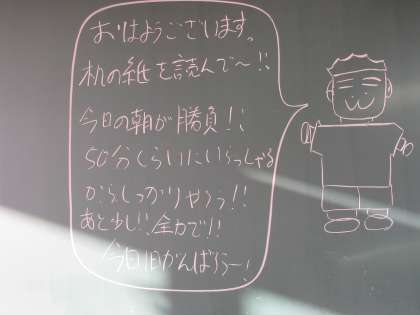 おはようございます。
机の紙を読んで〜!!
今日の朝が勝負!!
50分くらいにいらっしゃる
からしっかりやろう!!
あと少し!!全力で!!
今日1日がんばろうー!